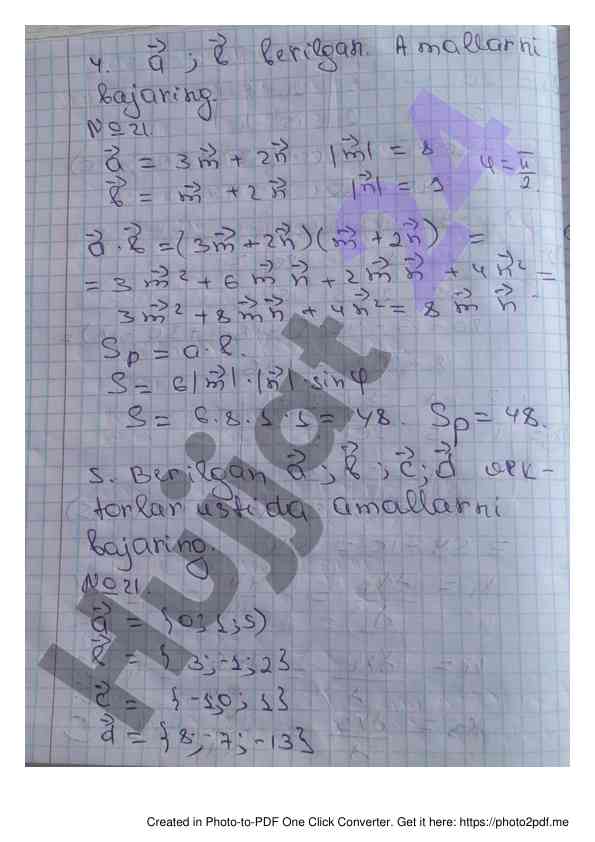 4. a⃗ ; b⃗ berilgan. Amallarni
bajaring.
№21.
a⃗ = 3m⃗ + 2n⃗ |m⃗| = 8 φ = π/2
b⃗ = m⃗ + 2n⃗ |n⃗| = 1
a⃗ · b⃗ = (3m⃗ + 2n⃗)(m⃗ + 2n⃗) =
= 3m⃗² + 6m⃗ n⃗ + 2m⃗ n⃗ + 4n⃗² =
3m⃗² + 8m⃗n⃗ + 4n⃗² = 8 m⃗ n⃗
Sp = a·b.
S = 6|m⃗|·|n⃗|·sinφ
S = 6·8·1·1 = 48. Sp = 48.
5. Berilgan a⃗ ; b⃗ ; c⃗ ; d⃗ vek-
torlar ustida amallarni
bajaring.
№21.
a⃗ = {0; 1; 5)
b⃗ = { 3; -1; 2}
c⃗ = { -1,0; 1}
d⃗ = {8; -7; -13}
Hujjat 24
Created in Photo-to-PDF One Click Converter. Get it here: https://photo2pdf.me